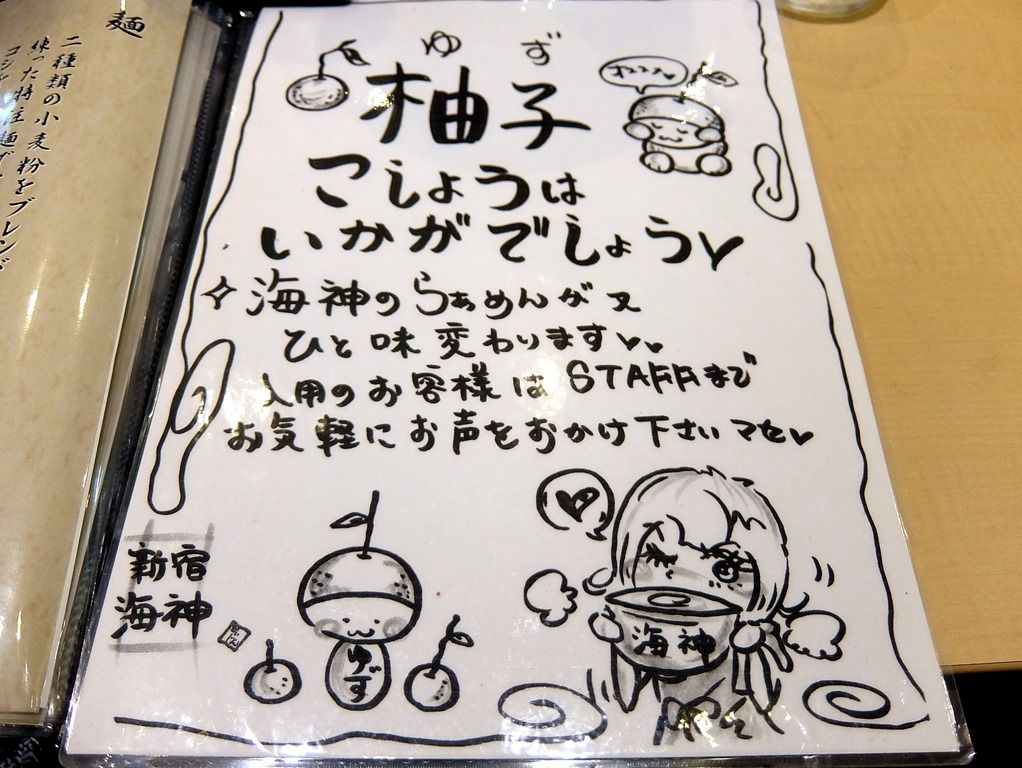 麺
二種類の小麦粉をブレンド
練った特注麺
ゆず
柚子
こしょうは
いかがでしょう♥
海神のらぁめんが又
ひと味変わります♥♥
入用のお客様はSTAFFまで
お気軽にお声をおかけ下さいマセ♥
新宿
海神
ゆず
海神